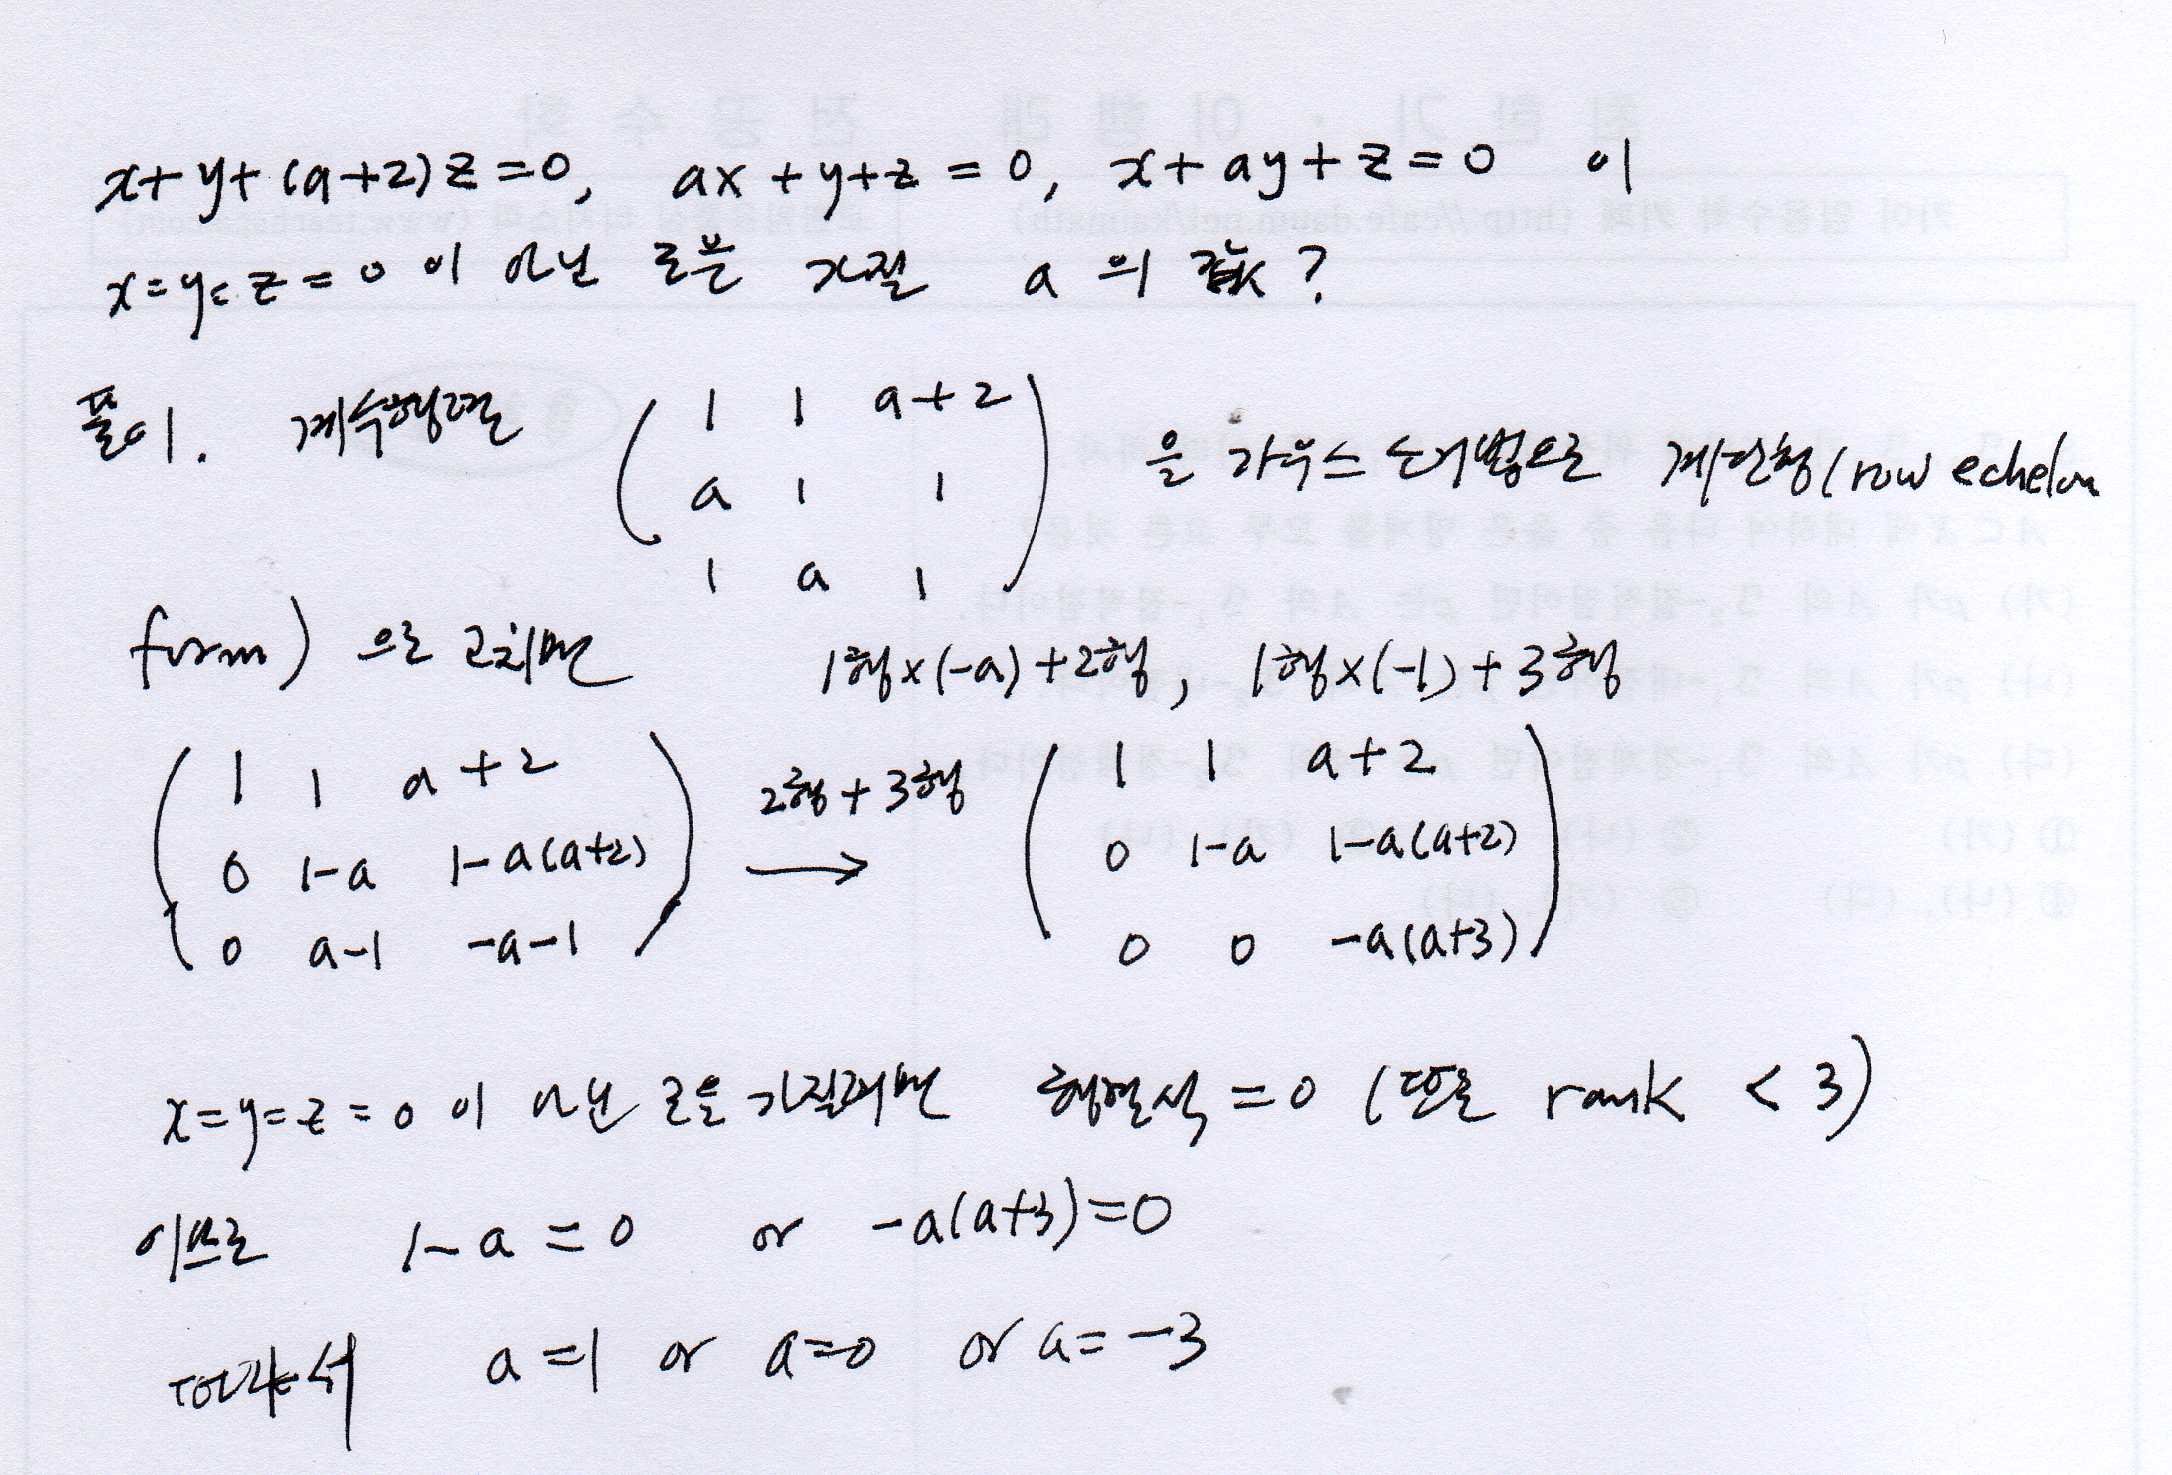 x+y+(a+2)z=0, ax+y+z=0, x+ay+z=0 이
x=y=z=0이 아닌 근을 가질 a의 값?
풀이. 계수행렬 ( 1 1 a+2 을 가우스 소거법으로 계단형(row echelon
a 1 1
1 a 1 )
form) 으로 고치면 1행×(-a)+2행, 1행×(-1)+3행
( 1 1 a+2 ) 2행+3행 ( 1 1 a+2 )
0 1-a 1-a(a+2) → 0 1-a 1-a(a+2)
0 a-1 -a-1 0 0 -a(a+3)
x=y=z=0이 아닌 근을 가질려면 행렬식=0 (또는 rank < 3)
이므로 1-a=0 or -a(a+3)=0
따라서 a=1 or a=0 or a=-3